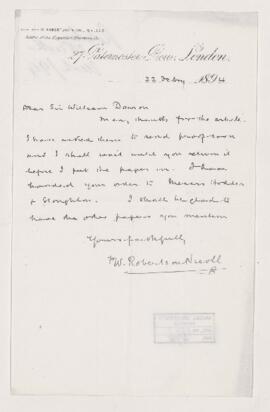 27, Paternoster Row, London.
23 May 1894
Dear Sir William Dawson
Many thanks for the article.
I have asked them to send proof soon
and I shall wait until you return it
before I put the paper in. I have
handed your order to Messrs Hodder
& Stoughton. I shall be glad to
have the other papers you mention
Yours faithfully
W. Robertson Nicoll